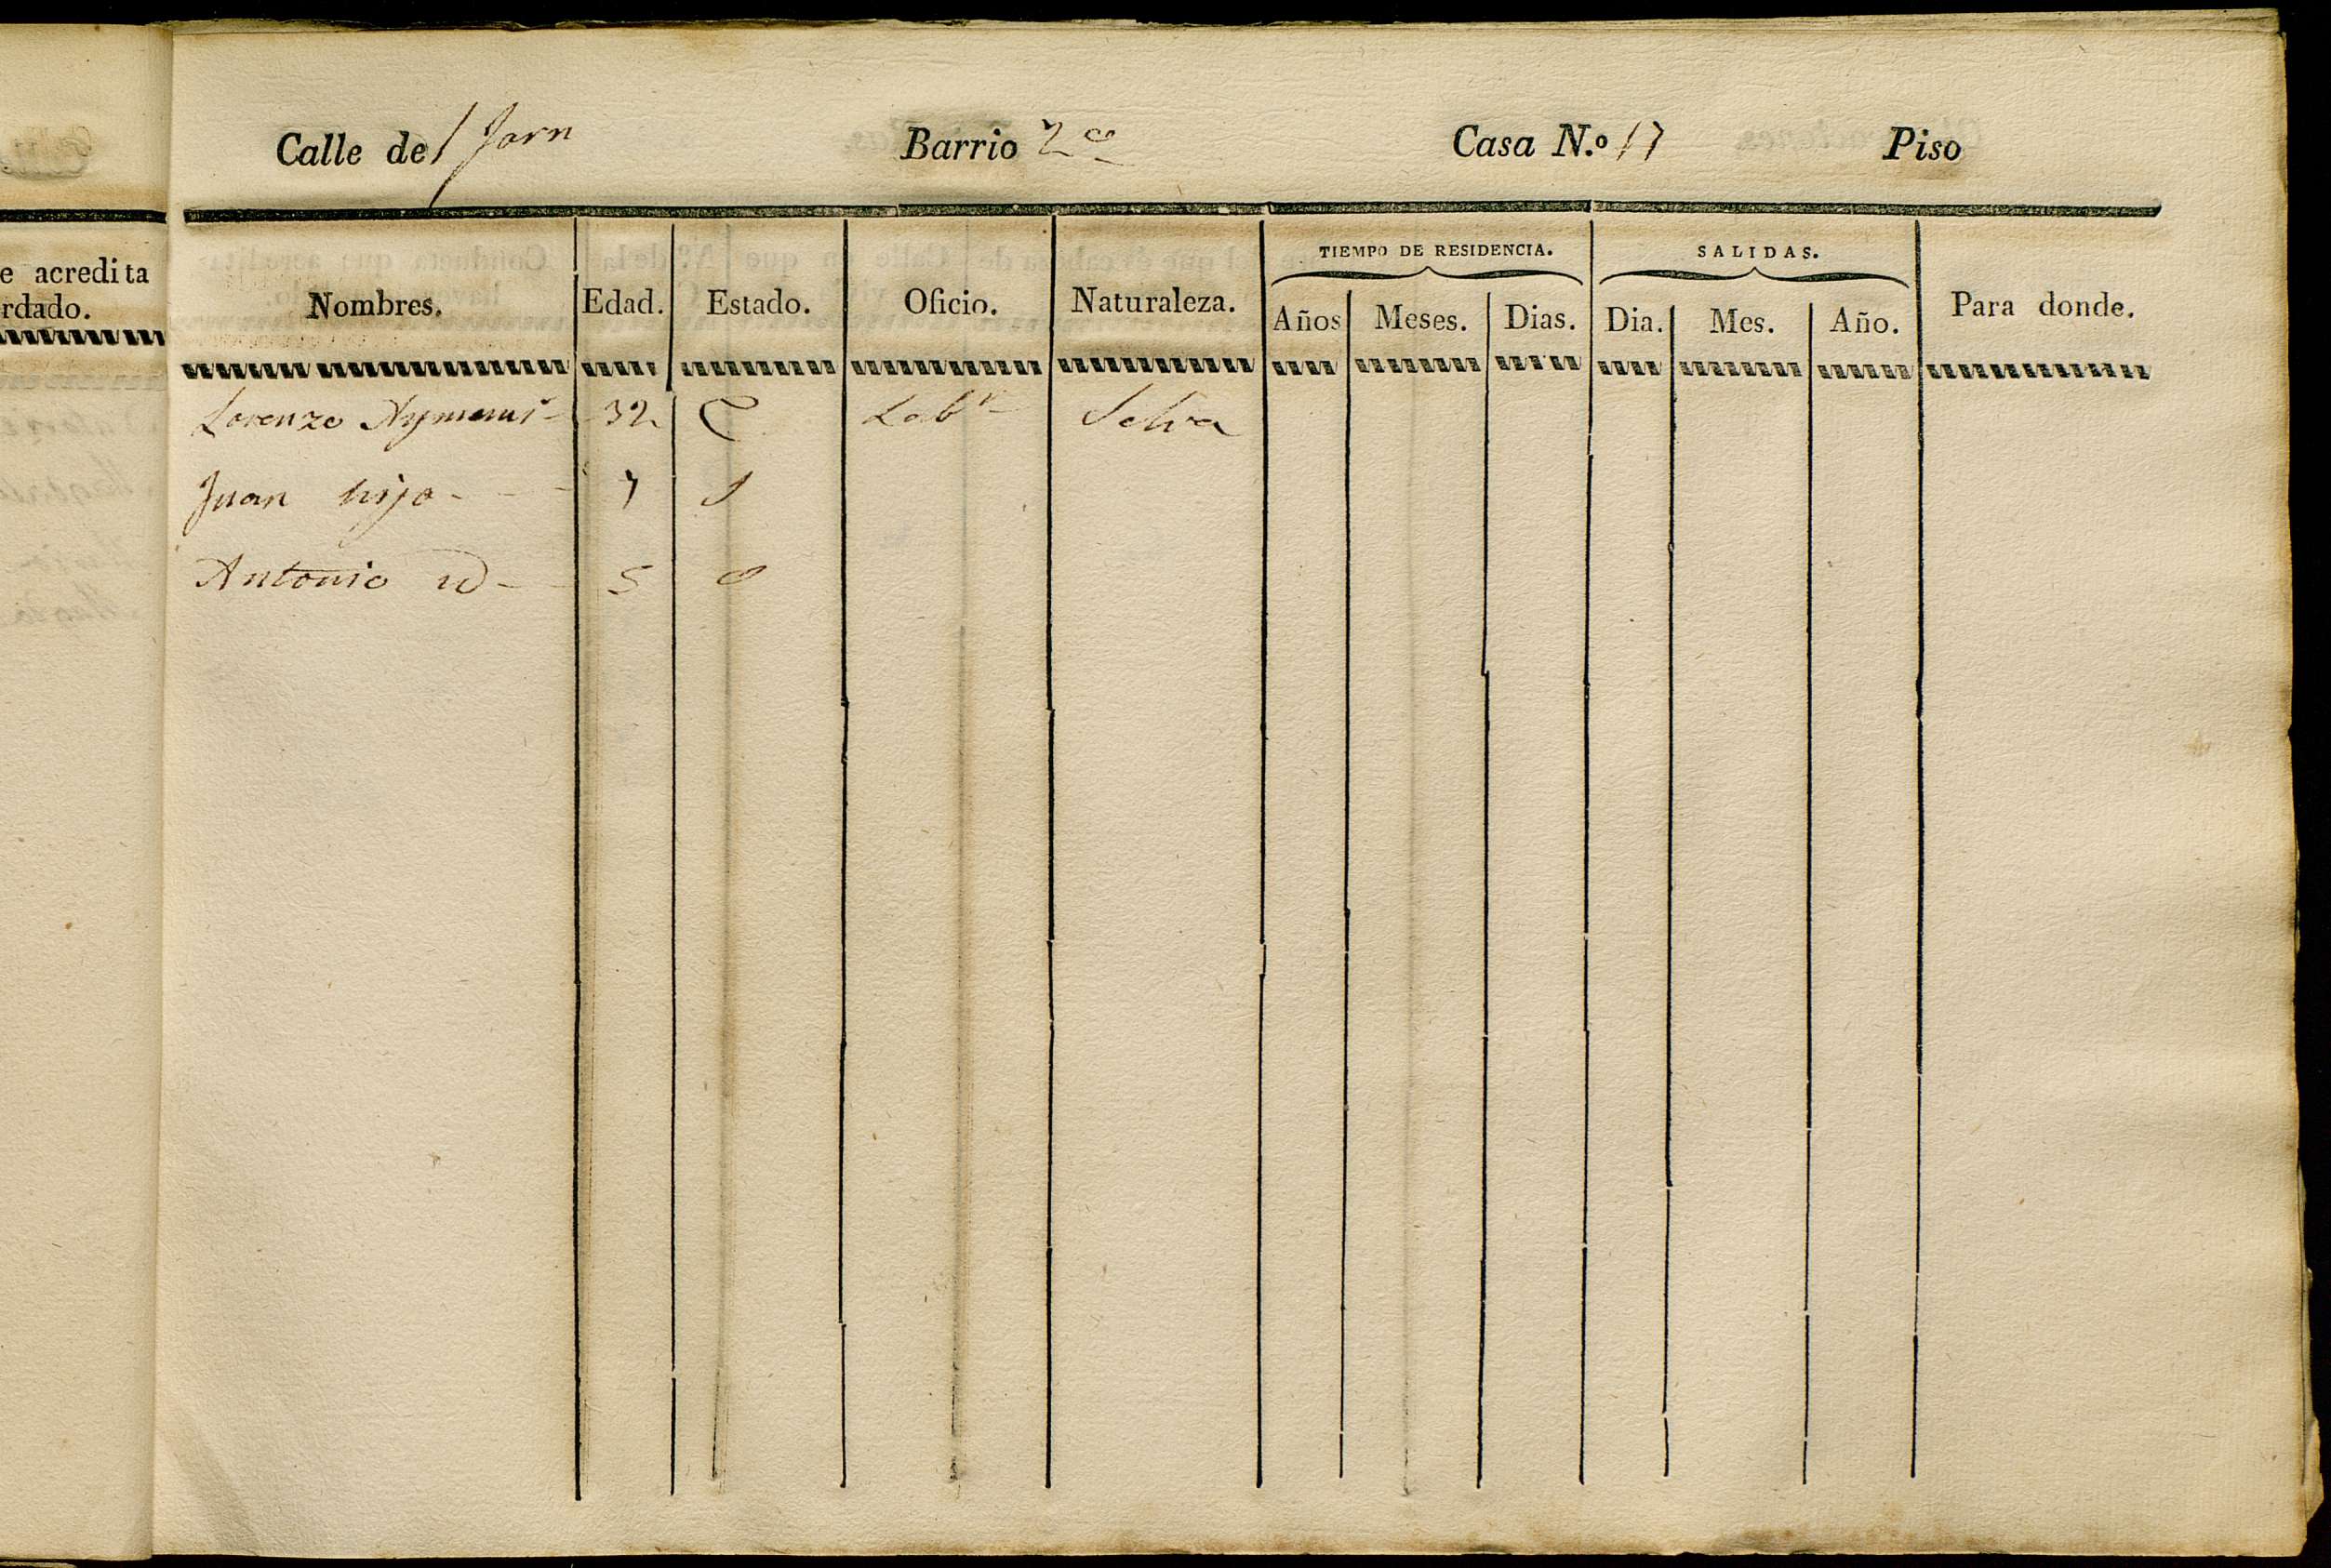 Calle del Forn Barrio 2º Casa N.º 17 Piso
e acredita
rdado.
TIEMPO DE RESIDENCIA. SALIDAS.
Nombres. Edad. Estado. Oficio. Naturaleza. Años Meses. Dias. Dia. Mes. Año. Para donde.
Lorenzo Aymemi 32 C Labr Selva
Juan hijo - - - 7 S
Antonio id - - 5 S